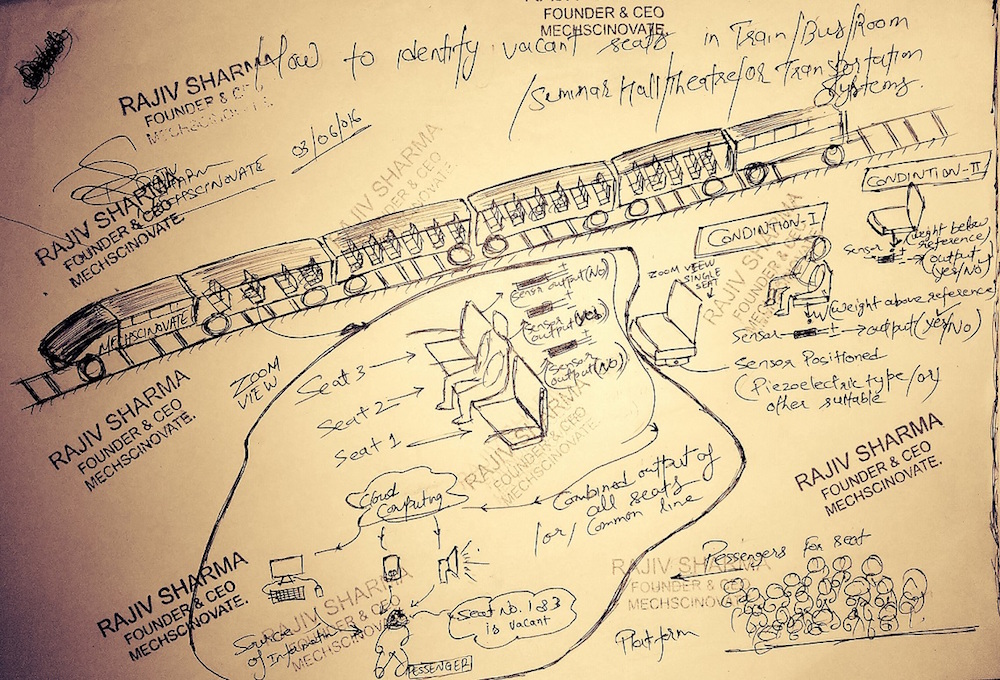 FOUNDER & CEO
MECHSCINOVATE.
How to identify vacant seats in Train/Bus/Room
/Seminar Hall/Theatre/or Transportation
Systems.
RAJIV SHARMA
FOUNDER & CEO
MECHSCINOVATE
03/06/016
RAJIV SHARMA
FOUNDER & CEO
MECHSCINOVATE.
RAJIV SHARMA
FOUNDER & CEO
MECHSCINOVATE.
MECHSCINOVATE
CONDINTION-II
Sensor
(Weight below
reference)
output
(yes/No)
CONDINTION-I
RAJIV SHARMA
FOUNDER & CEO
MECHSCINOVATE.
(Weight above reference)
Sensor
output (yes/No)
ZOOM VEEW
SINGLE
SEAT
Sensor Positioned
(Piezoelectric type/or)
other suitable
ZOOM
VIEW
Sensr output (No)
Sensor
output (yes)
Sensor
output (No)
Seat 3
Seat 2
Seat 1
RAJIV SHARMA
FOUNDER & CEO
MECHSCINOVATE.
RAJIV SHARMA
FOUNDER & CEO
MECHSCINOVATE.
RAJIV SHARMA
FOUNDER & CEO
MECHSCINOVATE.
Cloud
Computing
Combined output of
all seats
/or/ Common line
RAJIV SHARMA
FOUNDER & CEO
MECHSCINOVATE.
RAJIV SHARMA
FOUNDER & CEO
MECHSCINOVATE.
RAJIV SHARMA
FOUNDER & CEO
MECHSCINOVATE.
Seat No. 1&3
is vacant
of Information
PESSENGER
Pessengers for seat
Platform